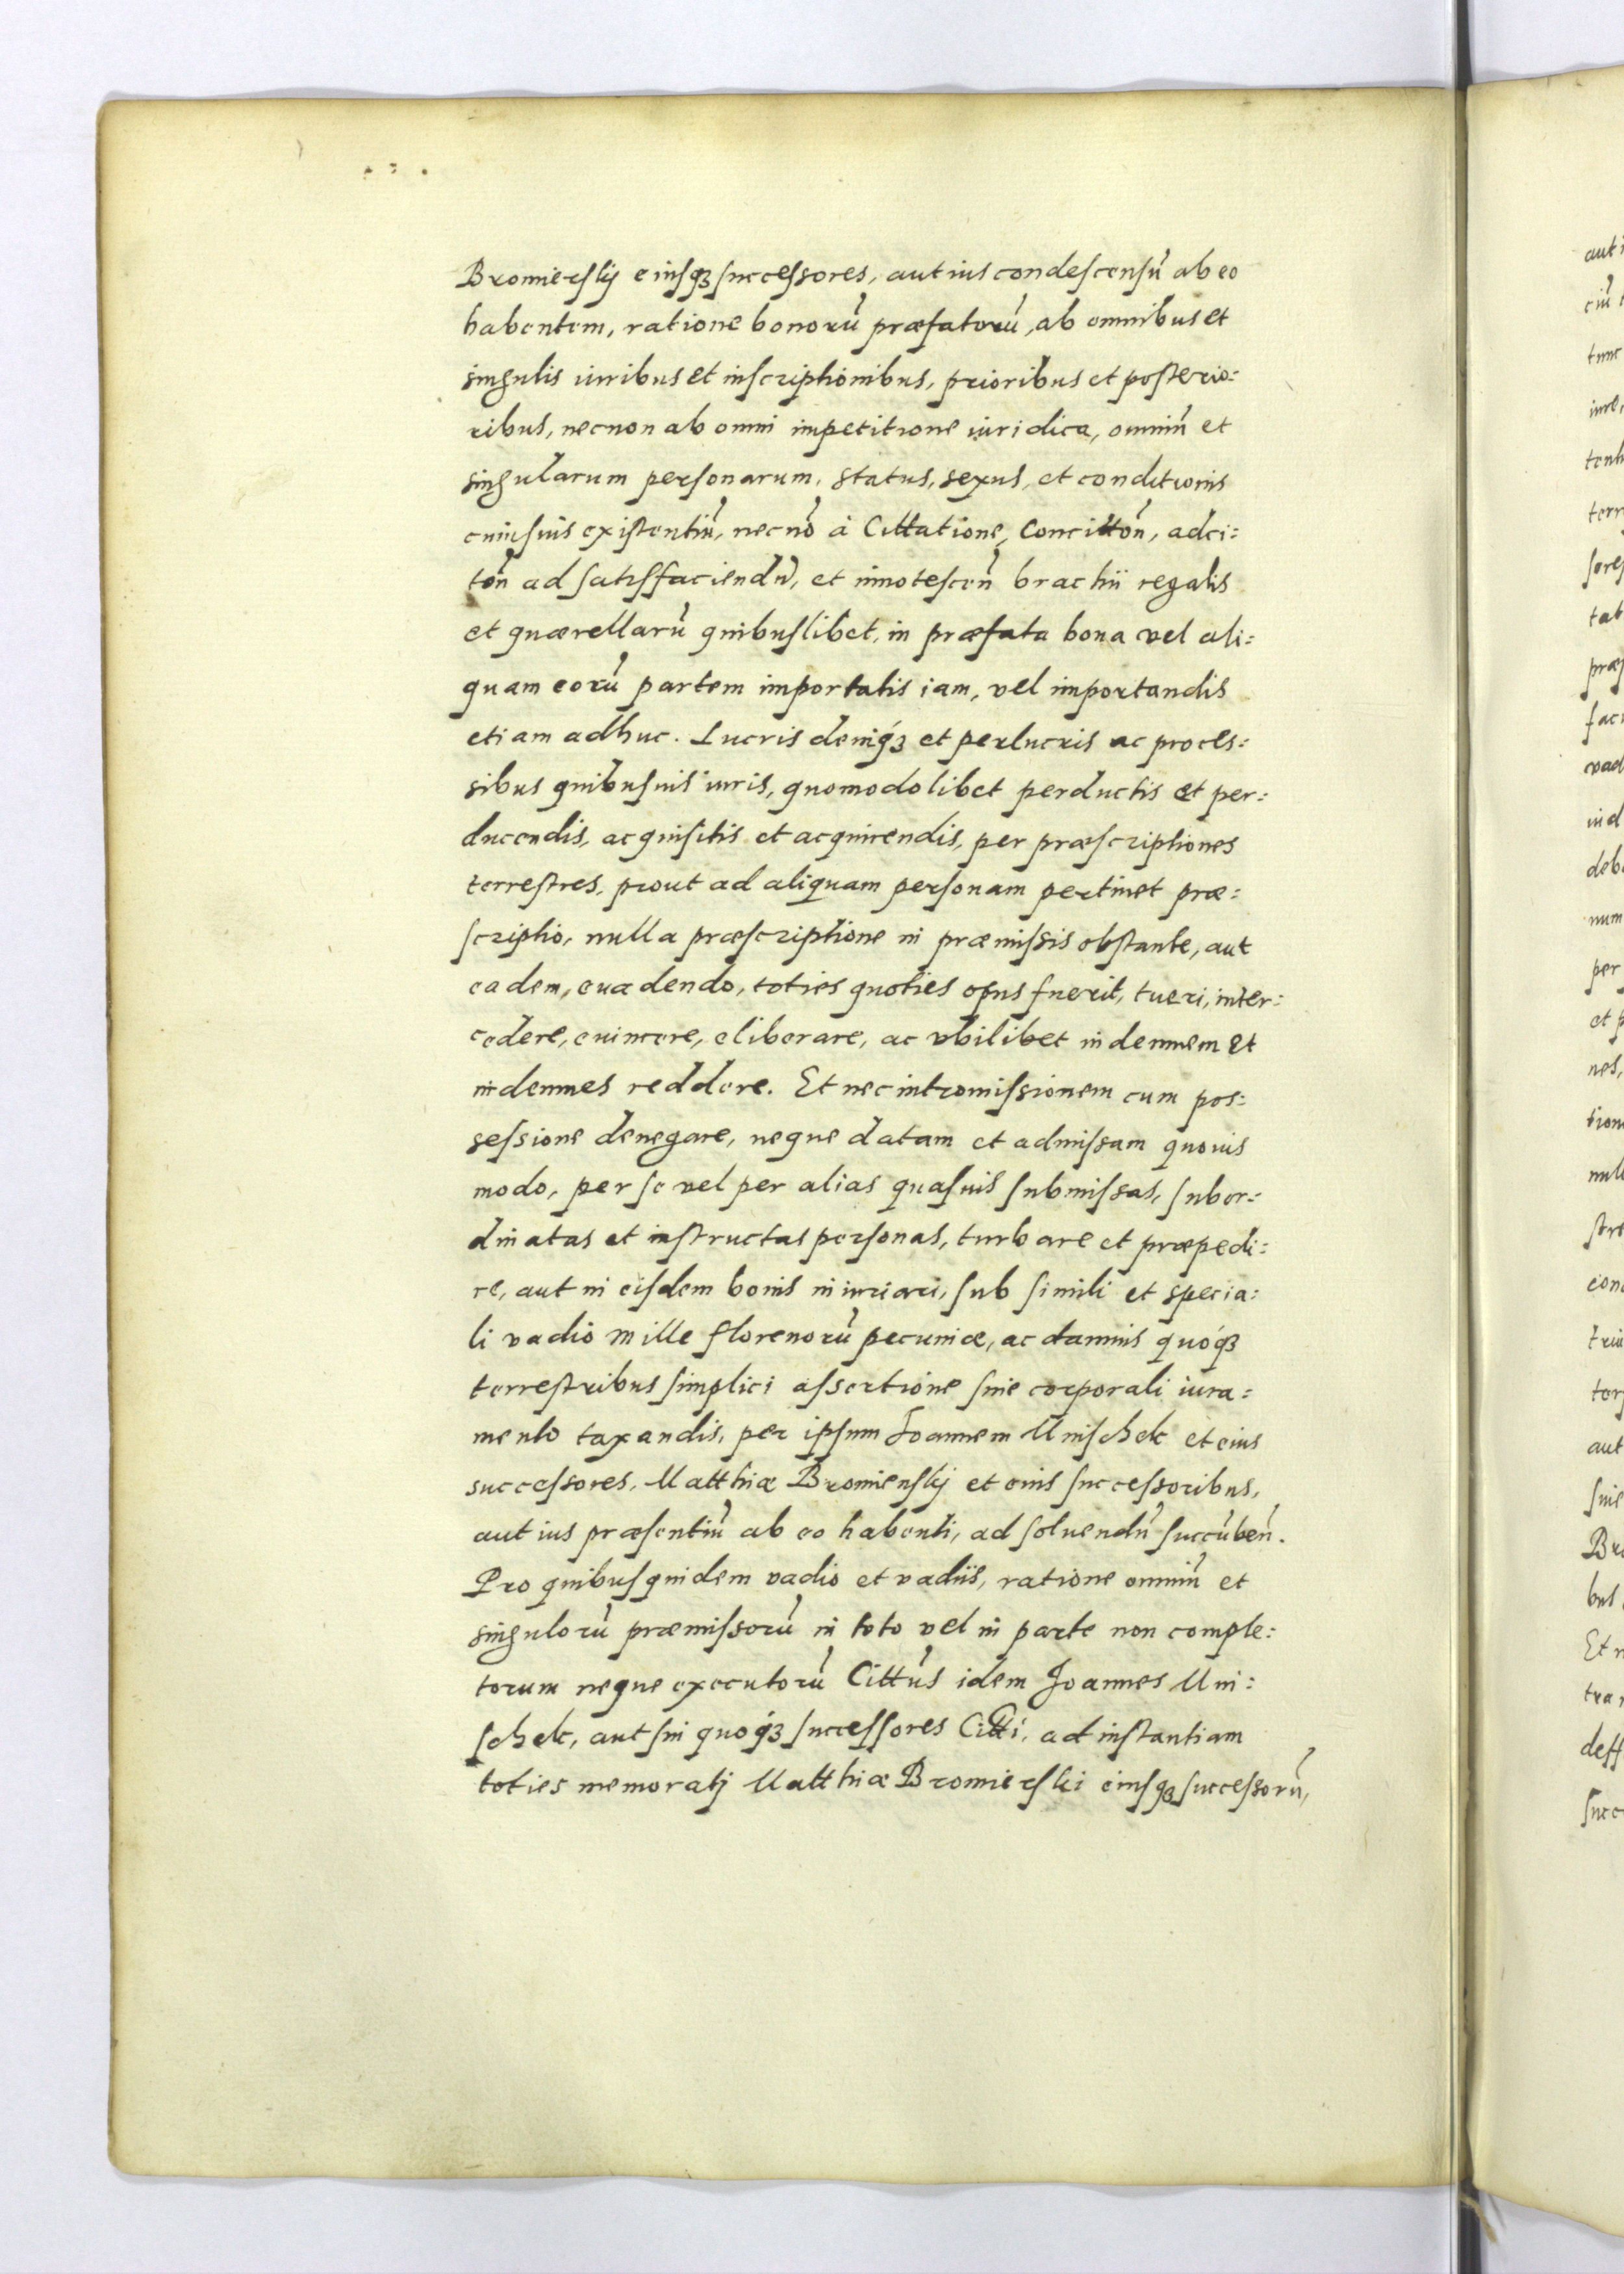 Bromierskij eiusq₃ successores, aut ius condescensũ ab eo
habentem, ratione bonorũ præfatorũ, ab omnibus et
singulis iuribus et inscriptionibus, prioribus et posterio:
ribus, necnon ab omni impetitione iuridica, omniũ et
singularum personarum, status, sexus, et conditionis
cuiusuis existentiũ, necnõ à Cittatione, Concittoñ, adci:
toñ ad satisfaciendũ, et innotesceñ brachii regalis
et quærellarũ quibuslibet, in præfata bona vel ali:
quam eorũ partem importatis iam, vel importandis
etiam adhuc. Lucris deniq₃ et perlucris ac proces:
sibus quibusuis iuris, quomodolibet perductis et per:
ducendis, acquisitis et acquirendis, per præscriptiones
terrestres, prout ad aliquam personam pertinet præ:
scriptio, nulla præscriptione in præmissis obstante, aut
eadem, euadendo, toties quoties opus fuerit, tueri, inter:
cedere, euincere, eliberare, ac vbilibet indemnem et
indemnes reddere. Et nec intromissionem cum pos:
sessione denegare, neque datam et admissam quouis
modo, per se vel per alias quasuis submissas, subor:
dinatas et instructas personas, turbare et præpedi:
re, aut in eisdem bonis iniuriari, sub simili et specia:
li vadio mille florenorũ pecuniæ, ac damnis quoq₃
terrestribus simplici assertione sine corporali iura:
mento taxandis, per ipsum Joannem Mnischek et eius
successores, Matthiæ Bromienskij et eius successoribus,
aut ius præsentiũ ab eo habenti, ad soluendũ succũbeñ.
Pro quibusquidem vadio et vadiis, ratione omniũ et
singulorũ præmissorũ in toto vel in parte non comple:
torum neque executorũ Cittũs idem Joannes Mni:
schek, aut sui quoq₃ successores Citti, ad instantiam
toties memoratj Matthiæ Bromierski eiusq₃ successorũ,